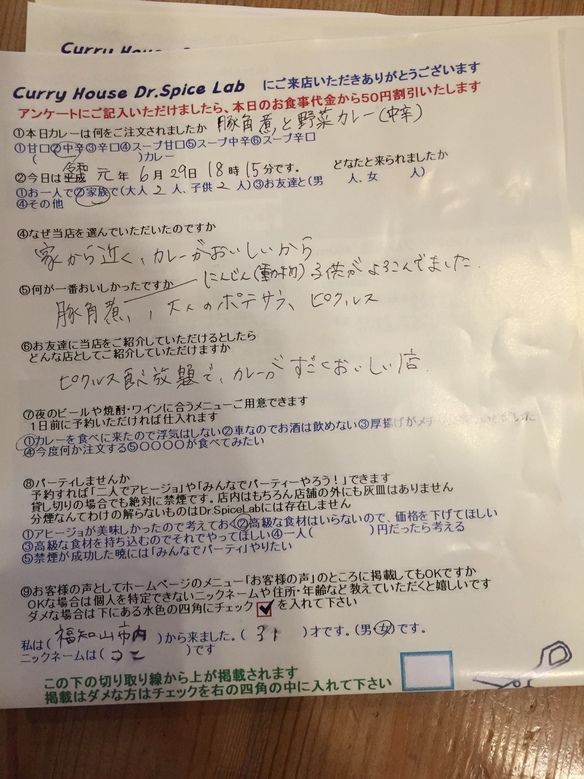 Curry House Dr.Spice Lab にご来店いただきありがとうございます
アンケートにご記入いただけましたら、本日のお食事代金から50円割引いたします
①本日カレーは何をご注文されましたか 豚角煮と野菜カレー(中辛)
①甘口②中辛③辛口④スープ甘口⑤スープ中辛⑥スープ辛口
( )カレー
令和
②今日は平成 元年 6月29日 18時15分です。 どなたと来られましたか
①お一人で②家族で(大人 2 人、子供 2 人)③お友達と(男 人、女 人)
④その他
④なぜ当店を選んでいただいたのですか
家から近く、カレーがおいしいから
⑤何が一番おいしかったですか にんじん(動物)子供がよろこんでました。
豚角煮、大人のポテサラ、ピクルス
⑥お友達に当店をご紹介していただけるとしたら
どんな店としてご紹介していただけますか
ピクルス食べ放題で、カレーがすごくおいしい店。
⑦夜のビールや焼酎・ワインに合うメニューご用意できます
1日前に予約いただければ仕入れます
①カレーを食べに来たので浮気はしない②車なのでお酒は飲めない③厚揚げが
④今度何か注文する⑤○○○○が食べてみたい
⑧パーティしませんか
予約すれば「二人でアヒージョ」や「みんなでパーティーやろう!」できます
貸し切りの場合でも絶対に禁煙です。店内はもちろん店舗の外にも灰皿はありません
分煙なんてわけの解らないものはDr.SpiceLabには存在しません
①アヒージョが美味しかったので考えておく②高級な食材はいらないので、価格を下げてほしい
③高級な食材を持ち込むのでそれでやってほしい④一人( )円だったら考える
⑤禁煙が成功した暁には「みんなでパーティ」やりたい
⑨お客様の声としてホームページのメニュー「お客様の声」のところに掲載してもOKですか
OKな場合は個人を特定できないニックネームや住所・年齢など教えていただくと嬉しいです
ダメな場合は下にある水色の四角にチェック を入れて下さい
私は( 福知山市内 )から来ました。( 31 )才です。(男・女)です。
ニックネームは( ココ )です
この下の切り取り線から上が掲載されます
掲載はダメな方はチェックを右の四角の中に入れて下さい